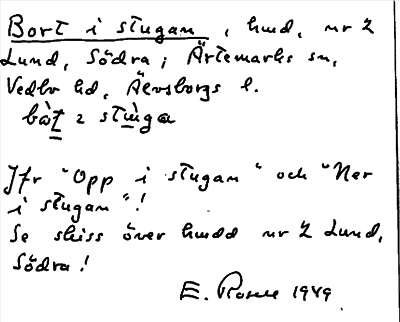 Bort i stugan, hmd, nr 2
Lund, Södra; Ärtemarks sn,
Vedbo hd, Älvsborgs l.
bà̀t i stùga
Jfr "Opp i stugan" och "Ner
i stugan"!
Se skiss över hmdd nr 2 Lund,
Södra!
E. Rosell 1949